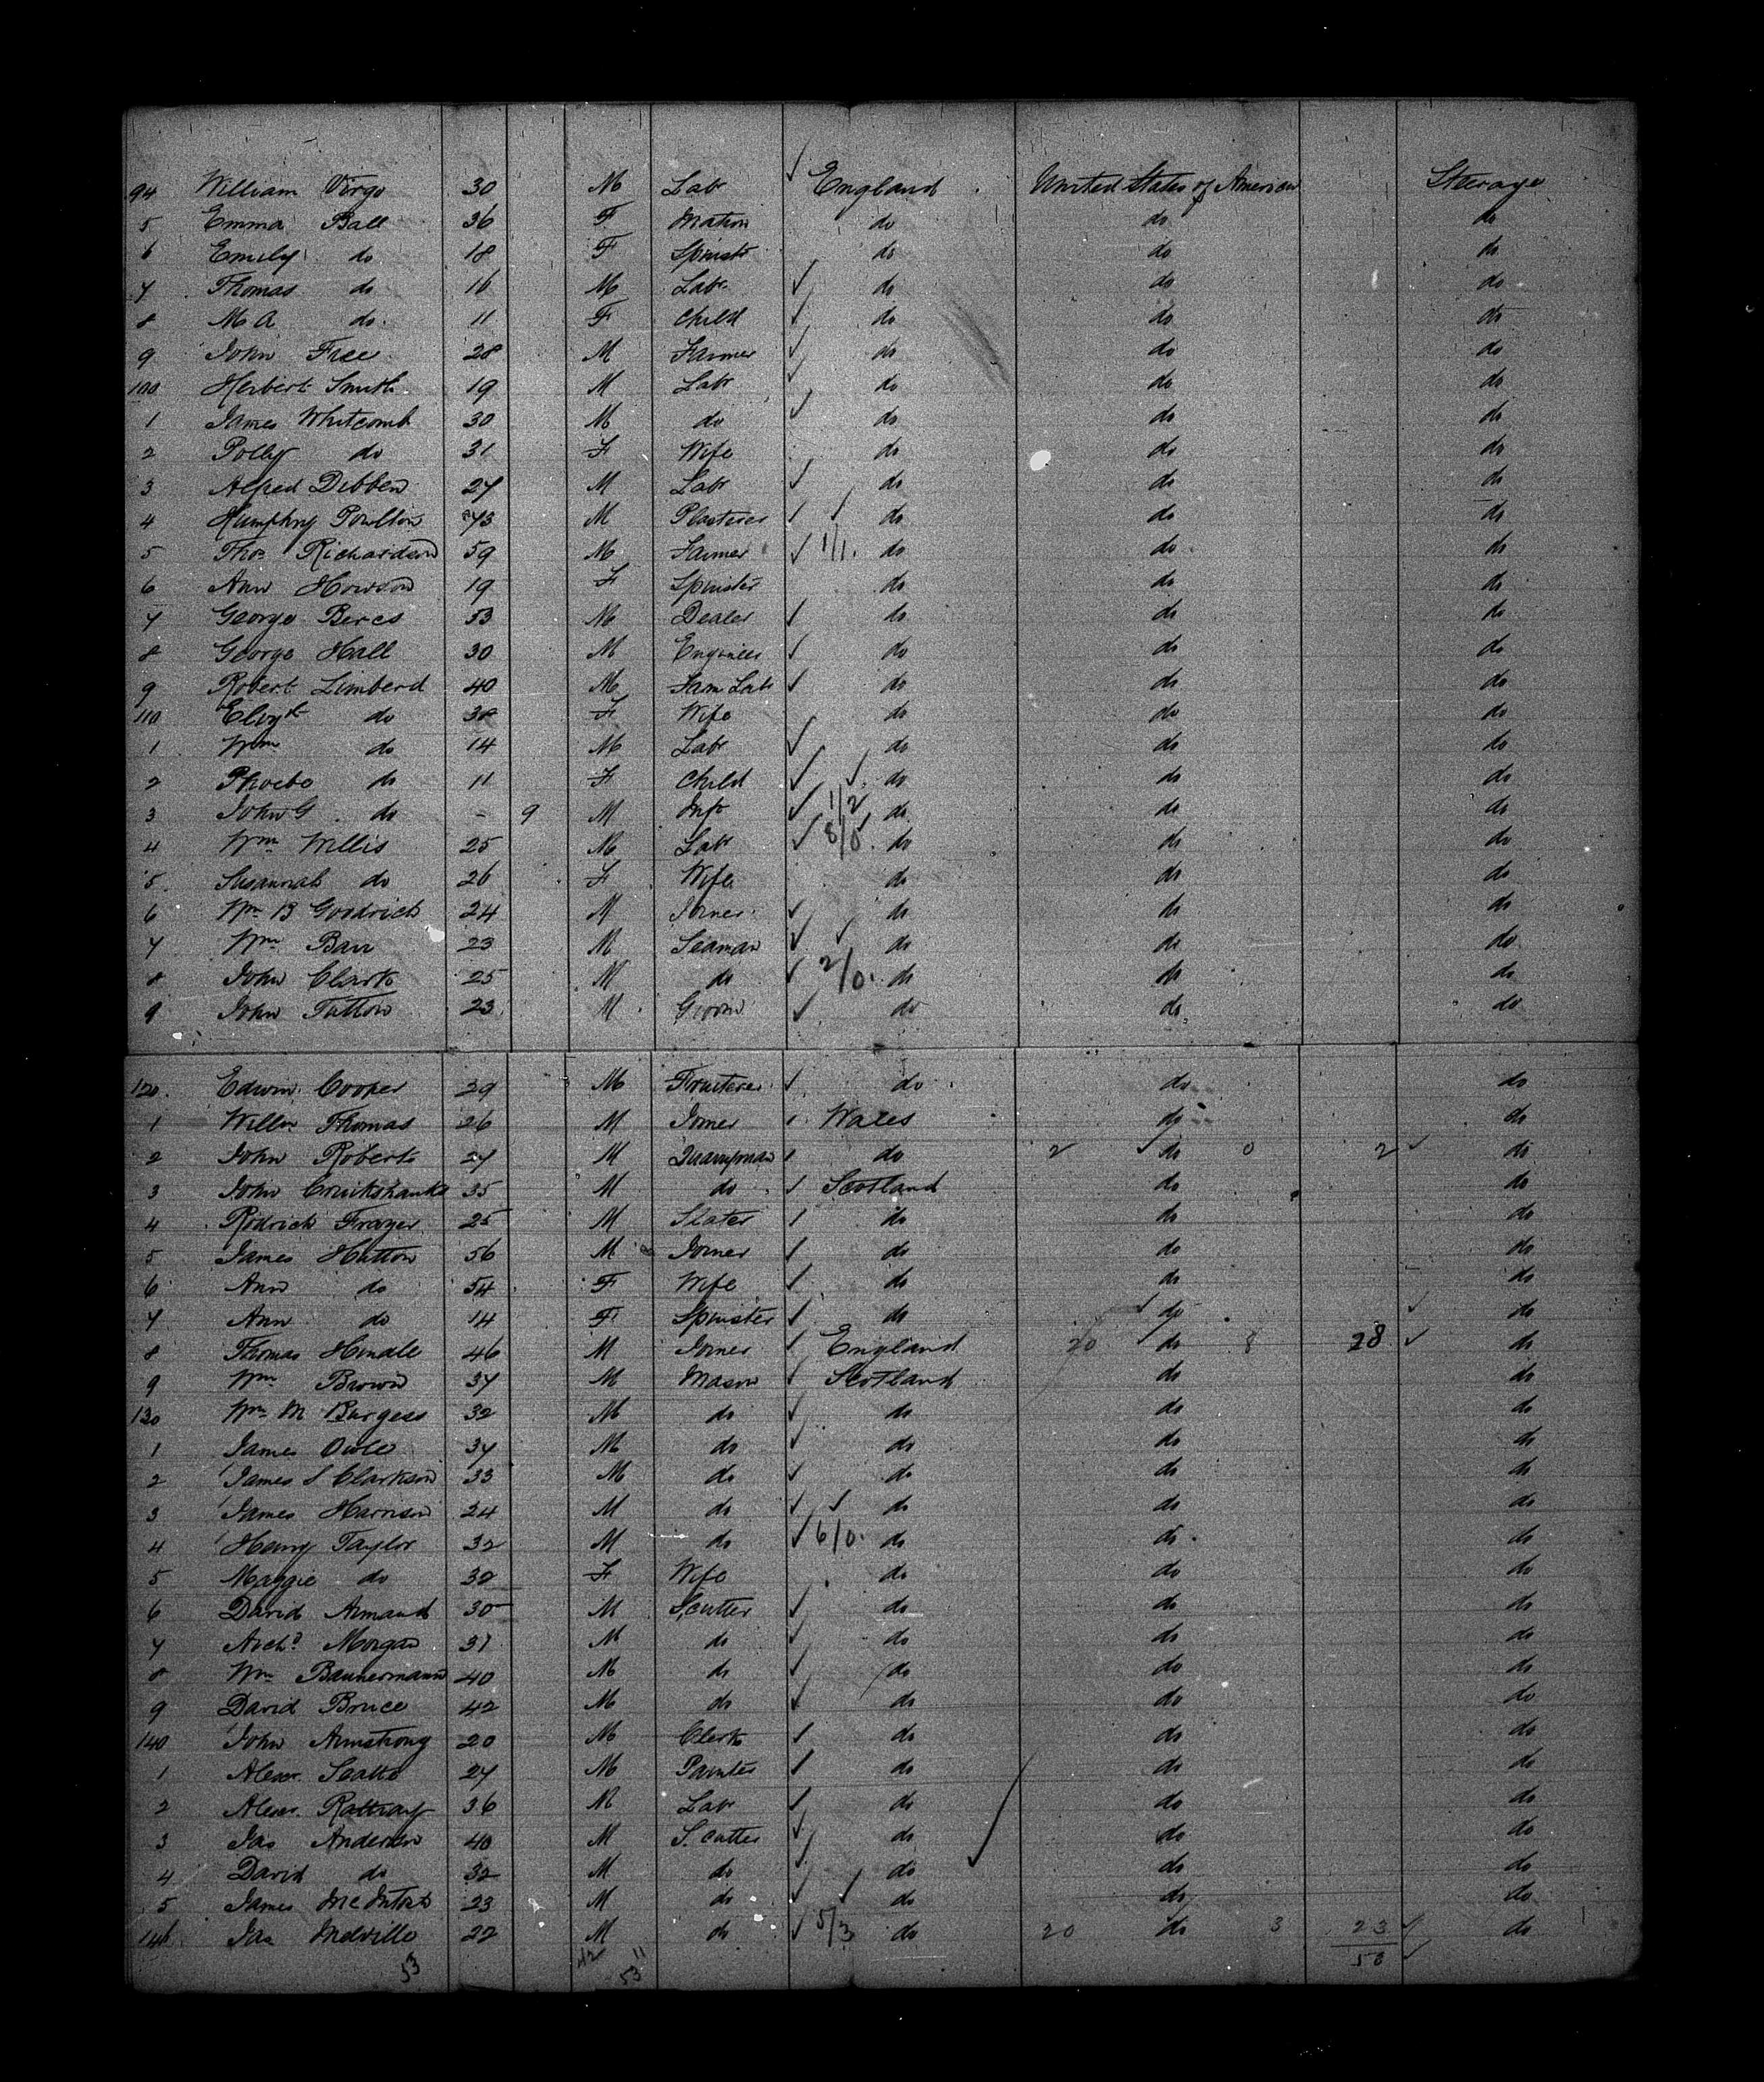 94 William Virgo 30 M Labr ✓ England United States of America Steerage
5 Emma Ball 36 F Matron do do do
6 Emily do 18 F Spinstr do do do
7 Thomas do 16 M Labr ✓ do do do
8 M A do 11 F Child ✓ do do do
9 John Free 28 M Farmer ✓ do do do
100 Herbert Smith 19 M Labr ✓ do do do
1 James Whitcomb 30 M do ✓ do do do
2 Polly do 31 F Wife do do do
3 Alfred Dibben 27 M Labr ✓ do do do
4 Humphry Poulton 43 M Plasterer ✓ ✓ do do do
5 Thos Richardson 59 M Farmer ✓ 1/1 do do do
6 Ann Howson 19 F Spinster do do do
7 George Beres 53 M Dealer ✓ do do do
8 George Hall 30 M Engineer ✓ do do do
9 Robert Limberd 40 M Farm Labr ✓ do do do
110 Elizth do 38 F Wife do do do
1 Wm do 14 M Labr ✓ do do do
2 Phoebe do 11 F Child ✓ ✓ do do do
3 John G do - 9 M Inft ✓ 1/2 do do do
4 Wm Willis 25 M Labr ✓ 8/0 do do do
5 Susannah do 26 F Wife do do do
6 Wm B Goodrich 24 M Joiner ✓ do do do
7 Wm Barr 23 M Seaman ✓ ✓ do do do
8 John Clark 25 M do ✓ 2/0 do do do
9 John Tatton 23 M Groom ✓ do do do
120 Edwin Cooper 29 M Fruiterer ✓ do do do
1 Willm Thomas 26 M Joiner ✓ Wales do do
2 John Roberts 27 M Quarryman ✓ do 2 ✓ do 0 2 ✓ do
3 John Cruikshanks 35 M do ✓ Scotland do do
4 Rodrick Frazer 25 M Slater ✓ do do do
5 James Hutton 56 M Joiner ✓ do do do
6 Ann do 54 F Wife ✓ do do do
7 Ann do 14 F Spinster ✓ do ✓ do ✓ do
8 Thomas Hindle 46 M Joiner ✓ England 20 do 8 28 ✓ do
9 Wm Brown 37 M Mason ✓ Scotland do do
130 Wm M Burgess 32 M do ✓ do do do
1 James 37 M do ✓ do do do
2 James S Clarkson 33 M do ✓ do do do
3 James Harrison 24 M do ✓ ✓ do do do
4 Henry Taylor 32 M do ✓ 6/0 do do do
5 Maggie do 32 F Wife do do do
6 David Armand 30 M S, cutter ✓ do do do
7 Archd Morgan 31 M do ✓ do do do
8 Wm Bannermann 40 M do ✓ do do do
9 David Bruce 42 M do ✓ do do do
140 John Armstrong 20 M Clerk ✓ do do do
1 Alexr 27 M Painter ✓ do do do
2 Alexr Rattray 36 M Labr ✓ do do do
3 Jas Anderson 40 M S. cutter ✓ do do do
4 David do 32 M do ✓ do ✓ do do
5 James McIntosh 23 M do ✓ ✓ do do do
146 Jas Melville 22 M do ✓ 5/3 do 20 do 3 23 ✓ do
53 42 11 53 ✓